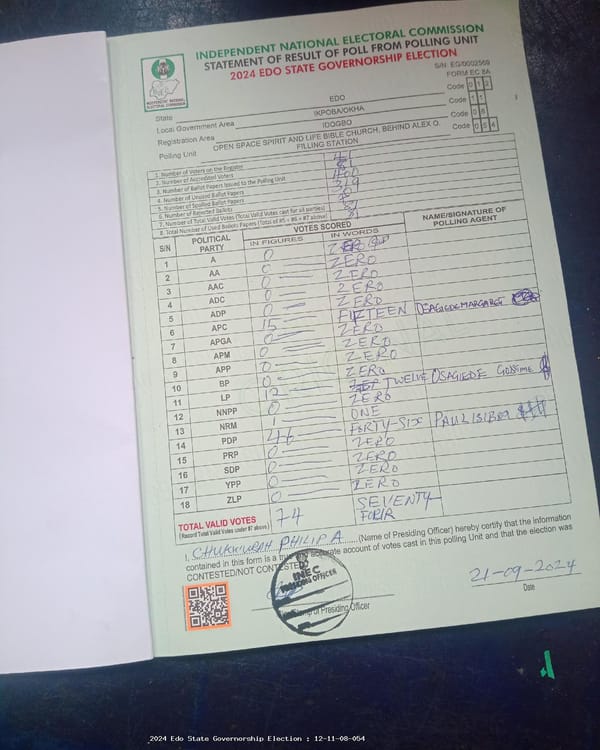 INDEPENDENT NATIONAL ELECTORAL COMMISSION
STATEMENT OF RESULT OF POLL FROM POLLING UNIT
2024 EDO STATE GOVERNORSHIP ELECTION
S/N: EG/0002569
FORM EC 8A
State EDO Code 12
Local Government Area IKPOBA/OKHA Code 11
Registration Area IDOGBO Code 08
Polling Unit OPEN SPACE SPIRIT AND LIFE BIBLE CHURCH, BEHIND ALEX O. FILLING STATION Code 054
1. Number of Voters on the Register
2. Number of Accredited Voters 81
3. Number of Ballot Papers Issued to the Polling Unit 400
4. Number of Unused Ballot Papers 319
5. Number of Spoiled Ballot Papers
6. Number of Rejected Ballots
7. Number of Total Valid Votes (Total Valid Votes cast for all parties)
8. Total Number of Used Ballots Papers (Total of #5 + #6 + #7 above) 81
S/N POLITICAL PARTY VOTES SCORED NAME/SIGNATURE OF POLLING AGENT
IN FIGURES IN WORDS
1 A 0 ZERO
2 AA 0 ZERO
3 AAC 0 ZERO
4 ADC 0 ZERO
5 ADP 0 ZERO
6 APC 15 FIFTEEN OSAGIEDE MARGARET
7 APGA 0 ZERO
8 APM 0 ZERO
9 APP 0 ZERO
10 BP 0 ZERO
11 LP 12 TWELVE OSAGIEDE
12 NNPP 0 ZERO
13 NRM 1 ONE
14 PDP 46 FORTY-SIX PAUL
15 PRP 0 ZERO
16 SDP 0 ZERO
17 YPP 0 ZERO
18 ZLP 0 ZERO
TOTAL VALID VOTES 74 SEVENTY FOUR
(Record Total Valid Votes under #7 above)
I, CHUKWURAH PHILIP A. (Name of Presiding Officer) hereby certify that the information
contained in this form is a true and accurate account of votes cast in this polling Unit and that the election was
CONTESTED/NOT CONTESTED
INEC
PRESIDING OFFICER
Stamp of Presiding Officer
21-09-2024
Date
2024 Edo State Governorship Election : 12-11-08-054